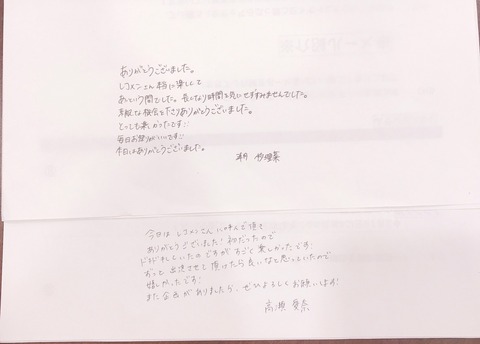 ありがとうございました。
レコメンさん本当に楽しくて
あという間でした。長くなり時間を気にせずすみませんでした。
素敵な機会を下さりありがとうございました。
とっても楽しかったです!!
毎日お祭りがいいです!!
本日はありがとうございました。
潮 紗理菜
今日はレコメンさんに呼んで頂て
ありがとうございました！初だったので
ドキドキしていたのですがすごく楽しかったです！
ずっと出演させて頂けたら良いなと思っていたので
嬉しかったです！
また企画がありましたら、ぜひよろしくお願いします！
高瀬 愛奈